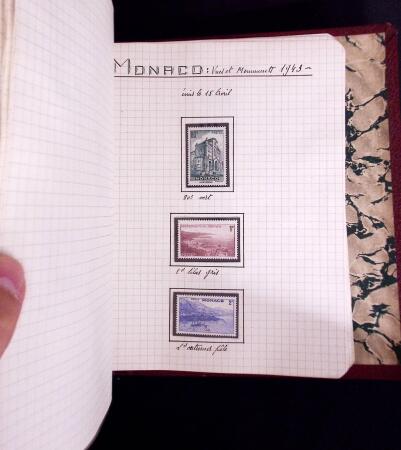 MONACO : Vues et Monuments 1943 –
émis le 15 Avril
MONACO
80c vert
1F lilas gris
MONACO
2F outremer pâle